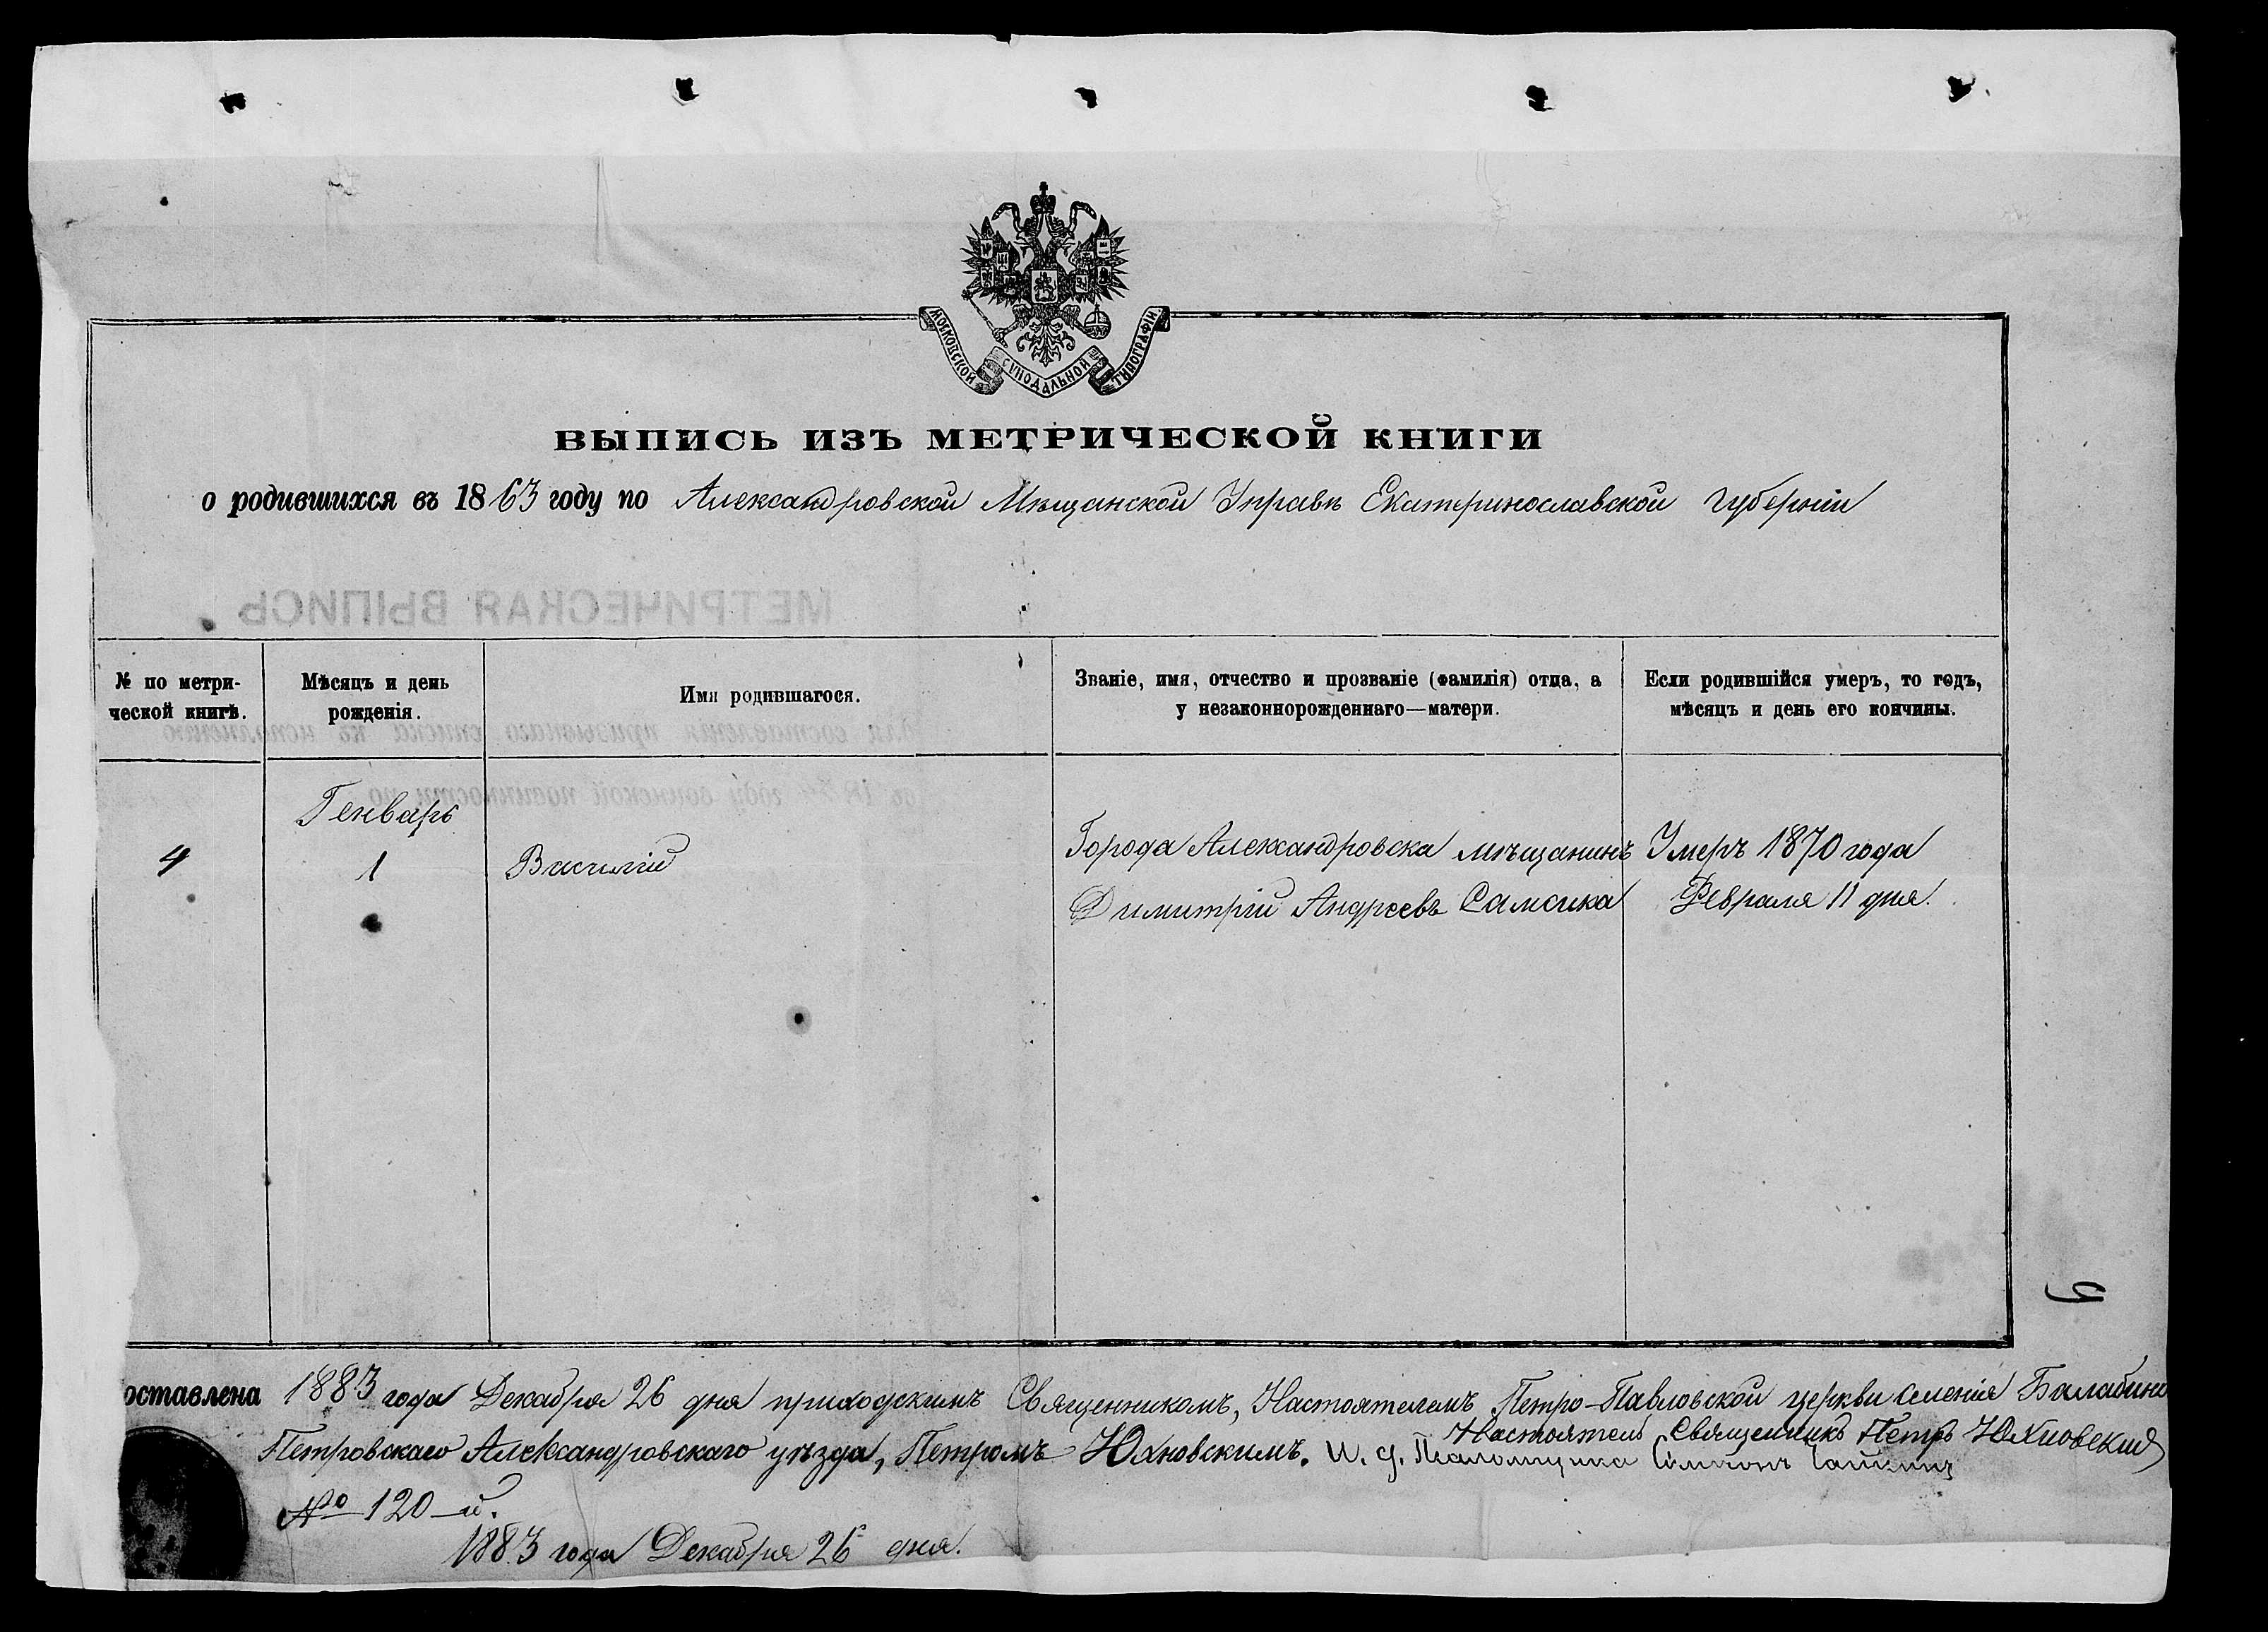 МОСКОВСКОЙ СѴНОДАЛЬНОЙ ТИПОГРАФІИ
ВЫПИСЬ ИЗЪ МЕТРИЧЕСКОЙ КНИГИ
о родившихся въ 1863 году по Александровской Мѣщанской Управѣ Екатеринославской губерніи
МЕТРИЧЕСКАЯ ВЫПИСЬ
№ по метри-
ческой книгѣ.
Мѣсяцъ и день
рожденія.
Имя родившагося.
Званіе, имя, отчество и прозваніе (фамилія) отца, а
у незаконнорожденнаго—матери.
Если родившійся умеръ, то годъ,
мѣсяцъ и день его кончины.
для составленія призывнаго списка къ исполненію
въ 18 году воинской повинности по
Генварь
4
1
Василій
Города Александровска мѣщанинъ
Димитрій Андреевъ Самсика
Умеръ 1870 года
Февраля 11 дня.
9
оставлена 1883 года Декабря 26 дня приходскимъ Священникомъ, Настоятелемъ Петро-Павловской церкви селенія Балабино
Петровскаго Александровскаго уѣзда, Петромъ Юхновскимъ. Настоятель Священникъ Петръ Юхновскій
И. д. Псаломщика Симеонъ
№ 120-й.
1883 года Декабря 26 дня.